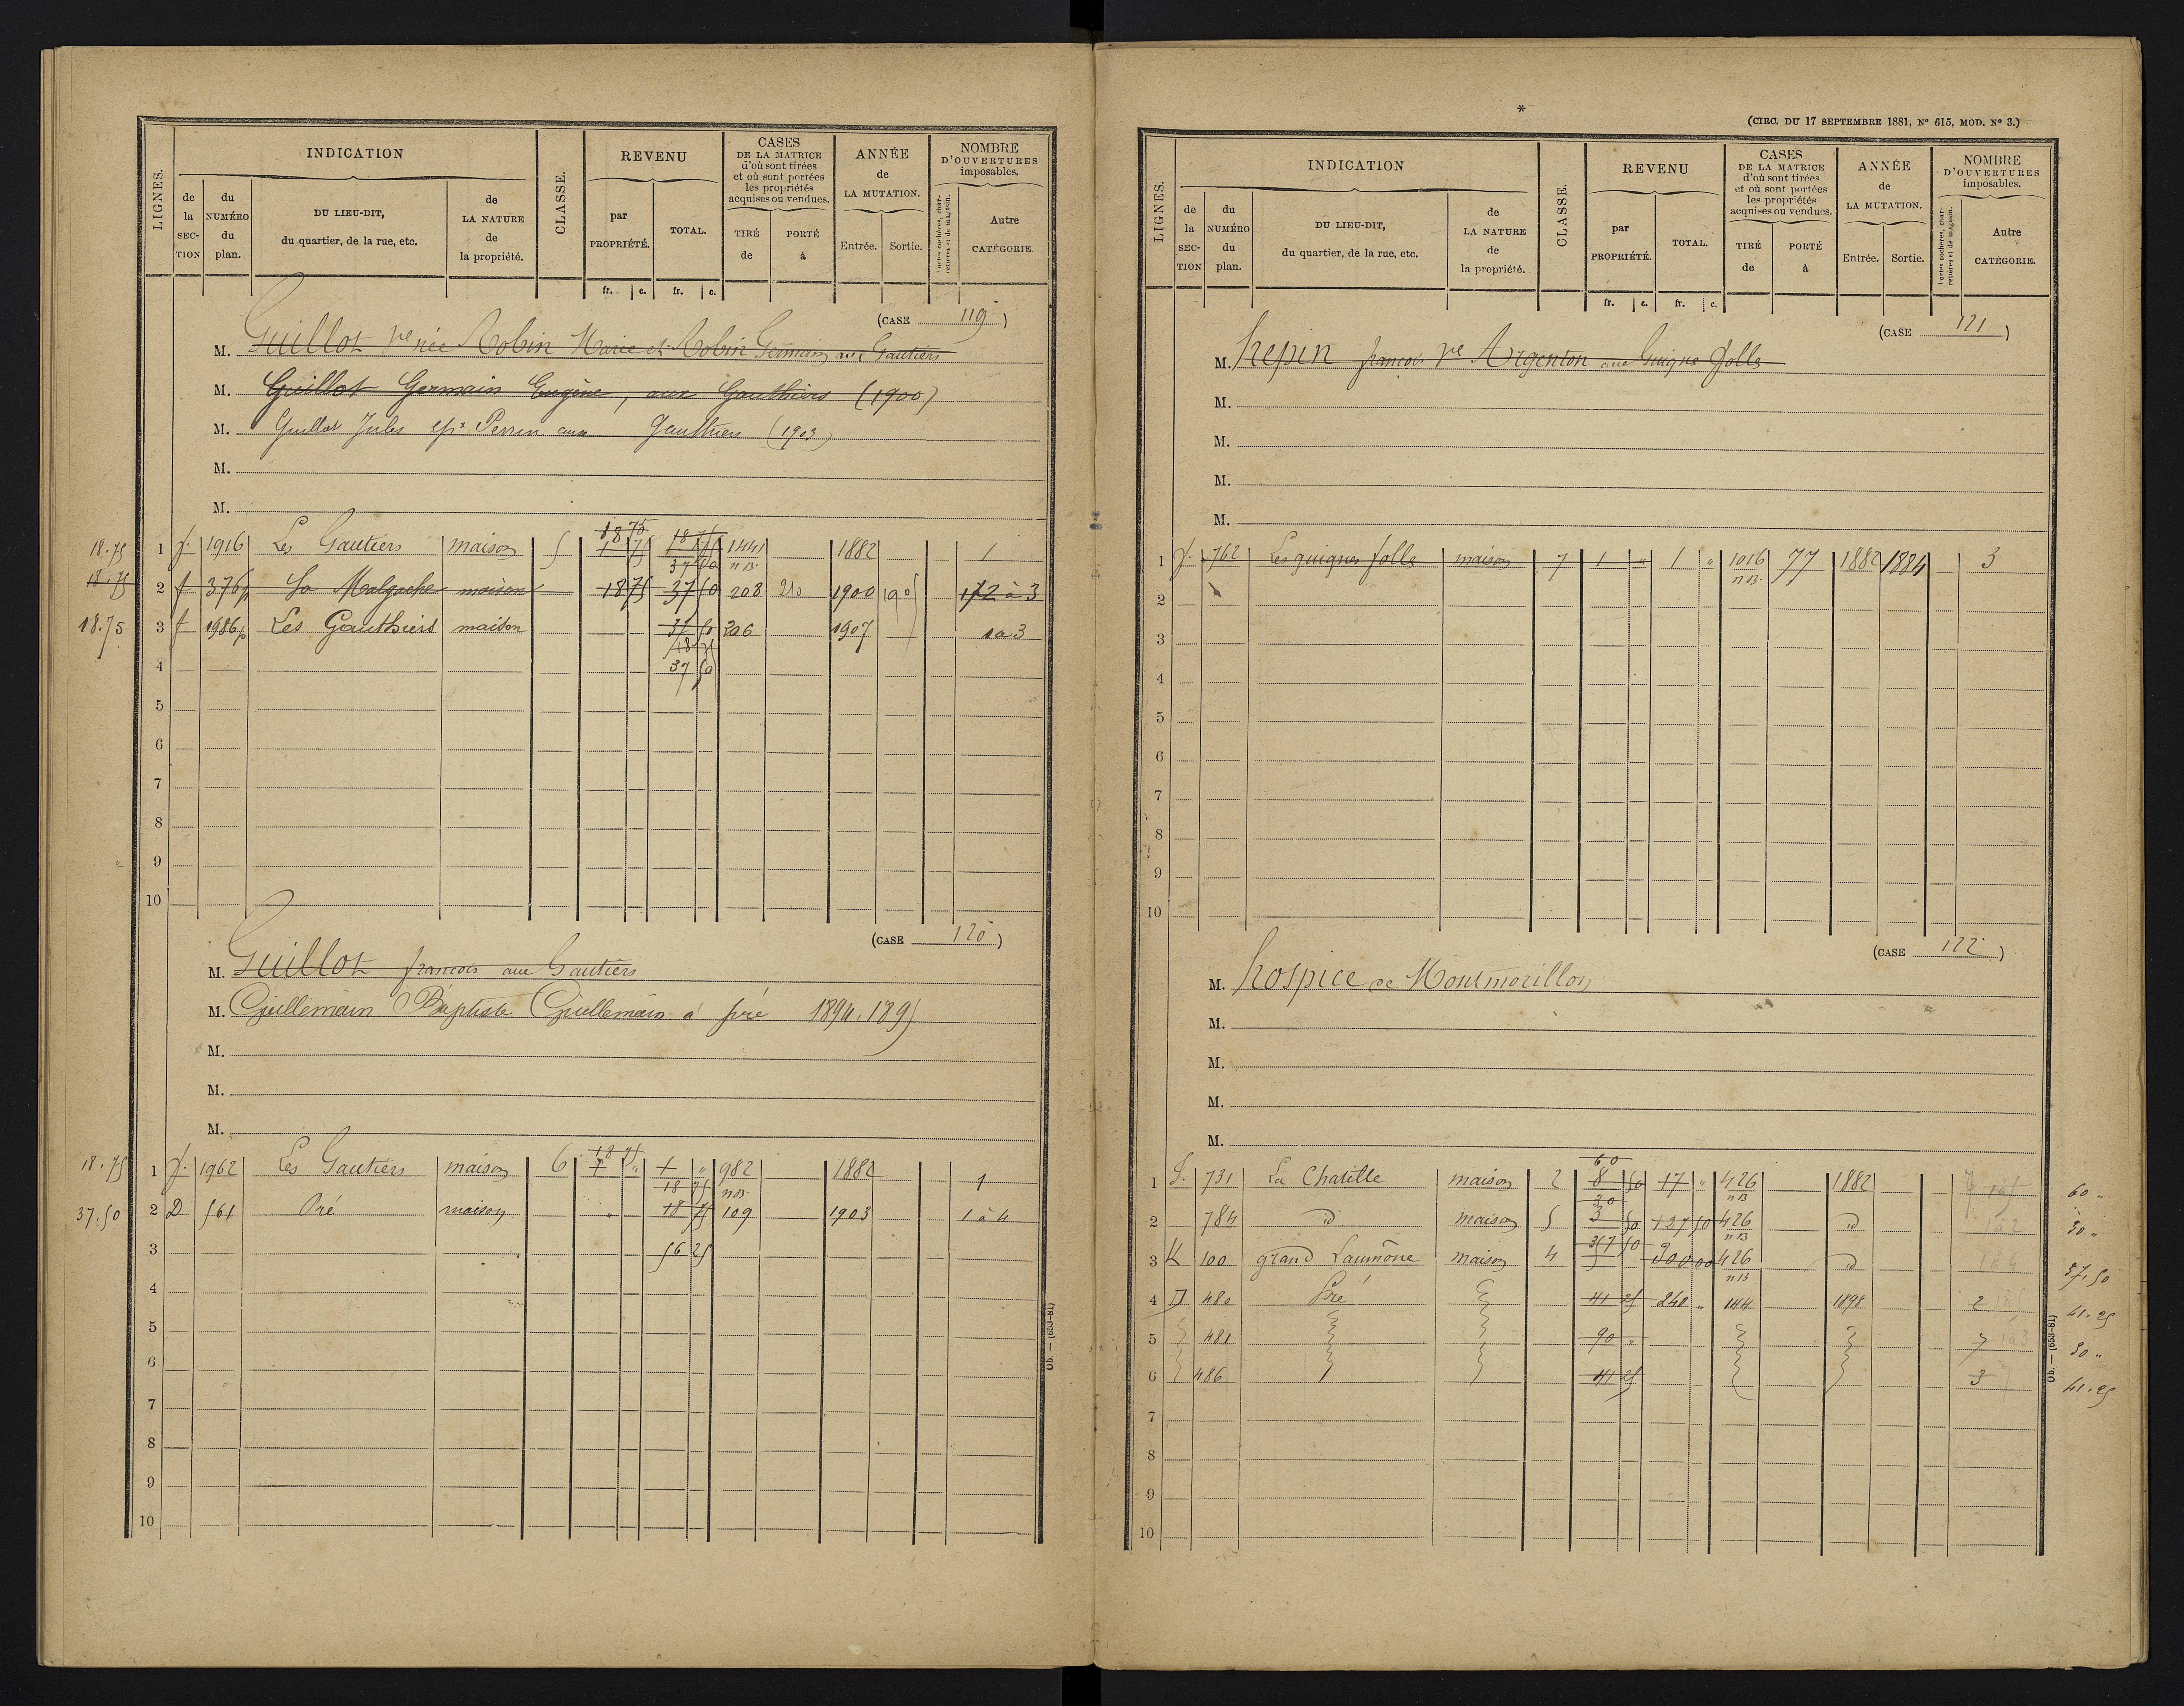 LIGNES.
INDICATION
de la SECTION
du NUMÉRO du plan.
DU LIEU-DIT,
du quartier, de la rue, etc.
de LA NATURE de la propriété.
CLASSE.
REVENU
par PROPRIÉTÉ.
TOTAL.
fr. c. fr. c.
CASES
DE LA MATRICE
d'où sont tirées
et où sont portées
les propriétés
acquises ou vendues.
TIRÉ de
PORTÉ à
ANNÉE
de
LA MUTATION.
Entrée. Sortie.
NOMBRE
D'OUVERTURES
imposables.
Portes cochères, charretières et de magasin.
Autre
CATÉGORIE.
(CASE 119)
M. Guillot Ve née Robin Marie et Robin Germain aux Gautiers
M. Guillot Germain Eugène, aux Gauthiers (1900)
M. Guillot Jules epx Perrin aux Gauthiers (1903)
M.
M.
18.75 1 f. 1916 Les Gautiers maison 5 18.75 1441 n B. 1882 1
18.75 2 f 376p La Malgache maison 18 75 37 50 208 210 1900 190 1 à 3
18.75 3 f 1986p Les Gauthiers maison 37 50 206 1907 1 à 3
18 75
4 37 50
5
6
7
8
9
10
(CASE 120)
M. Guillot francois aux Gautiers
M. Guillemain Baptiste Guillemain à pré 1894.1895
M.
M.
M.
18.75 1 f. 1962 Les Gautiers maison 6 18 75 1 " 982 n B. 1882 1
18 75
37.50 2 D 561 Pré maison " 18 75 109 1903 1 à 4
3 56 25
4
5
6
7
8
9
10
Ob. — (653-81)
*
(CIRC. DU 17 SEPTEMBRE 1881, N° 615, MOD. N° 3.)
LIGNES.
INDICATION
de la SECTION
du NUMÉRO du plan.
DU LIEU-DIT,
du quartier, de la rue, etc.
de LA NATURE de la propriété.
CLASSE.
REVENU
par PROPRIÉTÉ.
TOTAL.
fr. c. fr. c.
CASES
DE LA MATRICE
d'où sont tirées
et où sont portées
les propriétés
acquises ou vendues.
TIRÉ de
PORTÉ à
ANNÉE
de
LA MUTATION.
Entrée. Sortie.
NOMBRE
D'OUVERTURES
imposables.
Portes cochères, charretières et de magasin.
Autre
CATÉGORIE.
(CASE 121)
M. hepin francois Ve Argenton aux Guigne folle
M.
M.
M.
M.
1 f. 762 Les guignes folle maison 7 1 " 1 " 1016 n B. 77 1882 1884 3
2
3
4
5
6
7
8
9
10
(CASE 122)
M. hospice de Montmorillon
M.
M.
M.
M.
60
1 731 La Chatille maison 2 8 50 17 " 426 n B 1882 60 "
30
2 784 id maison 5 3 50 127 50 426 n B id 30 "
3 K 100 grand Laumône maison 4 5 426 n B id 57.50
4 D 480 Pré 41 25 240 " 144 1898 2 41.25
5 481 90 " 7 30 "
6 486 41 25 3 41.25
7
8
9
10
Ob. — (653-81)